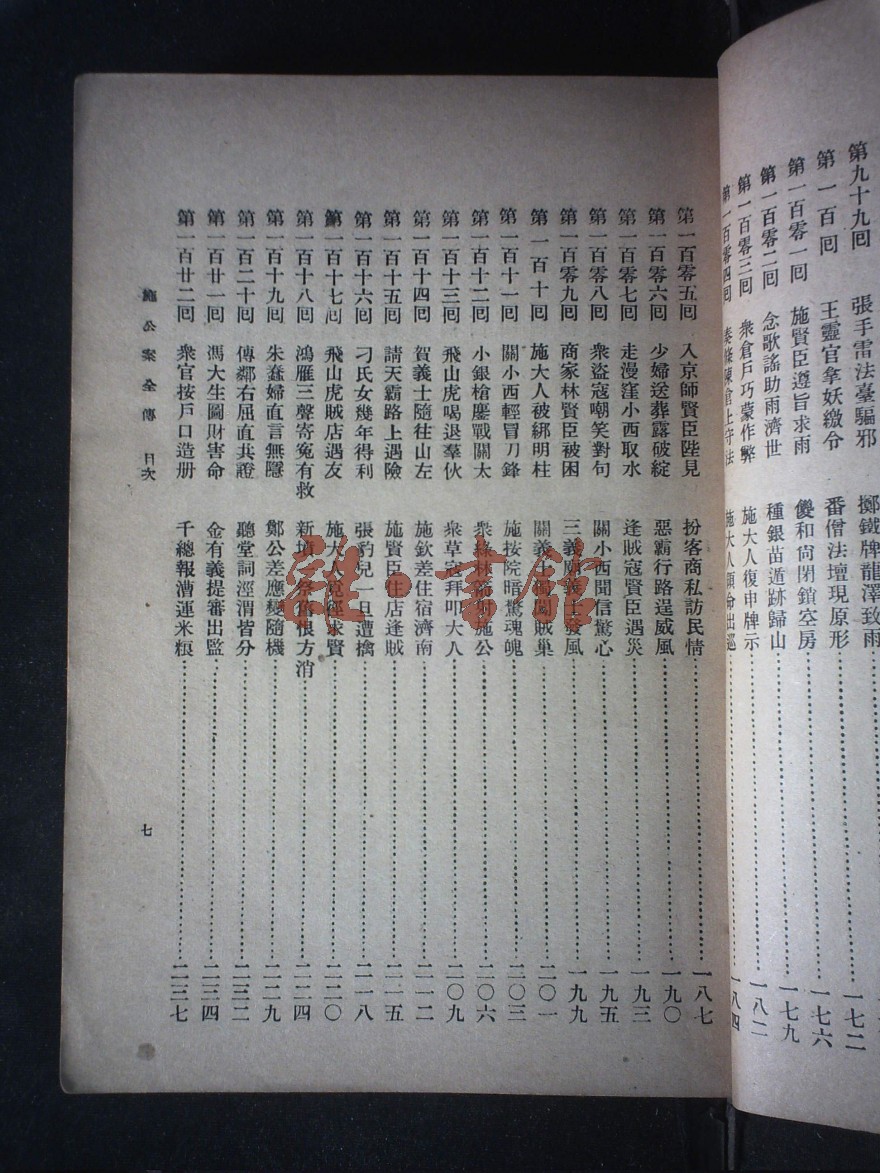 第九十九回 張手雷法臺驅邪 擲鐵牌龍澤致雨 一七二
第一百回 王靈官拿妖繳令 番僧法壇現原形 一七六
第一百零一回 施賢臣遵旨求雨 和尙閉鎖空房 一七九
第一百零二回 念歌謠助雨濟世 種銀苗遁跡歸山 一八二
第一百零三回 衆倉戶巧蒙作弊 施大人復申牌示 一八四
第一百零四回 奏條陳倉上守法 施大人領命出巡
第一百零五回 入京師賢臣陛見 扮客商私訪民情 一八七
第一百零六回 少婦送葬露破綻 惡霸行路逞威風 一九〇
第一百零七回 走漫窪小西取水 逢賊寇賢臣遇災 一九三
第一百零八回 衆盜寇嘲笑對句 關小西聞信驚心 一九五
第一百零九回 商家林賢臣被困 三義廟義士發風 一九九
第一百十回 施大人被綁明柱 關義士獨闖賊巢 二〇一
第一百十一回 關小西輕冒刀鋒 施按院暗驚魂魄 二〇三
第一百十二回 小銀槍鏖戰關太 衆綠林施公 二〇六
第一百十三回 飛山虎喝退羣伙 衆草寇拜叩大人 二〇九
第一百十四回 賀義士隨往山左 施欽差住宿濟南 二一二
第一百十五回 請天霸路上遇險 施賢臣住店逢賊 二一五
第一百十六回 刁氏女幾年得利 張豹兒一旦遭擒 二一八
第一百十七回 飛山虎賊店遇友 施大人覓徑求賢 二二〇
第一百十八回 鴻雁三聲寄冤有救 新墳一祭舊恨方消 二二四
第一百十九回 朱蠢婦直言無隱 鄭公差應變隨機 二二九
第一百二十回 傳鄰右屈直共證 聽堂詞涇渭皆分 二三二
第一百廿一回 馮大生圖財害命 金有義提審出監 二三四
第一百廿二回 衆官按戶口造册 千總報漕運米糧 二三七
施公案全傳 目次
七
雜·書館